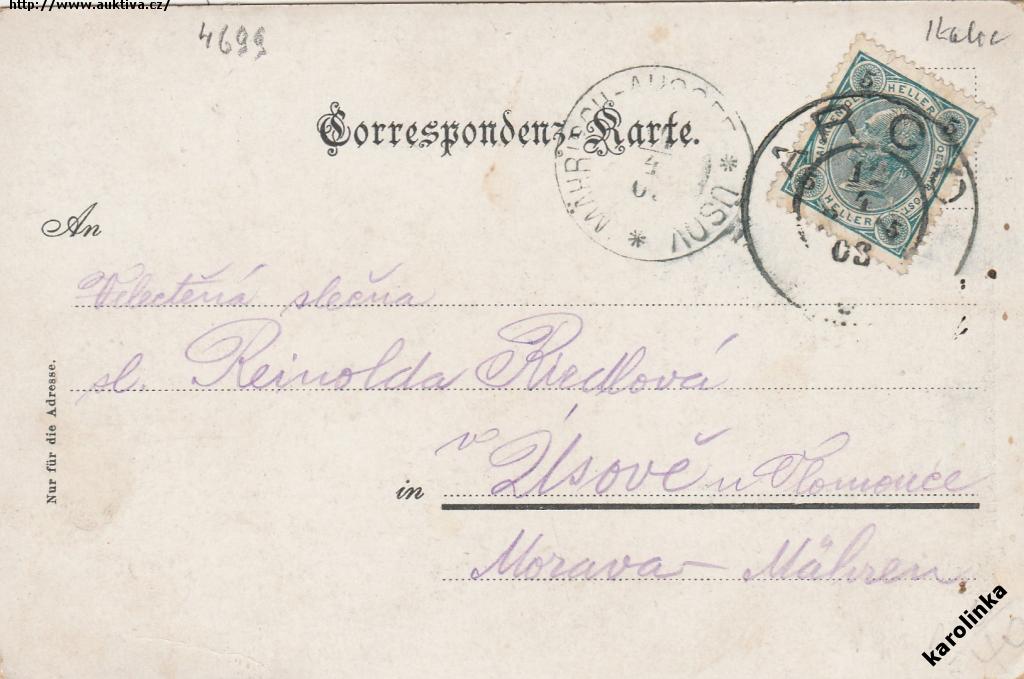 http://www.auktiva.cz/
4699
Correspondenz-Karte.
MÄHRISCH-AUSSEE * ÚSOV *
5 HELLER 5
5 HELLER 5
ARCO
12
4
03
An
Velectěná slečna
sl. Reinolda Riedlová
v
in Úsově u Olomouce
Morava – Mähren.
Nur für die Adresse.
karolinka